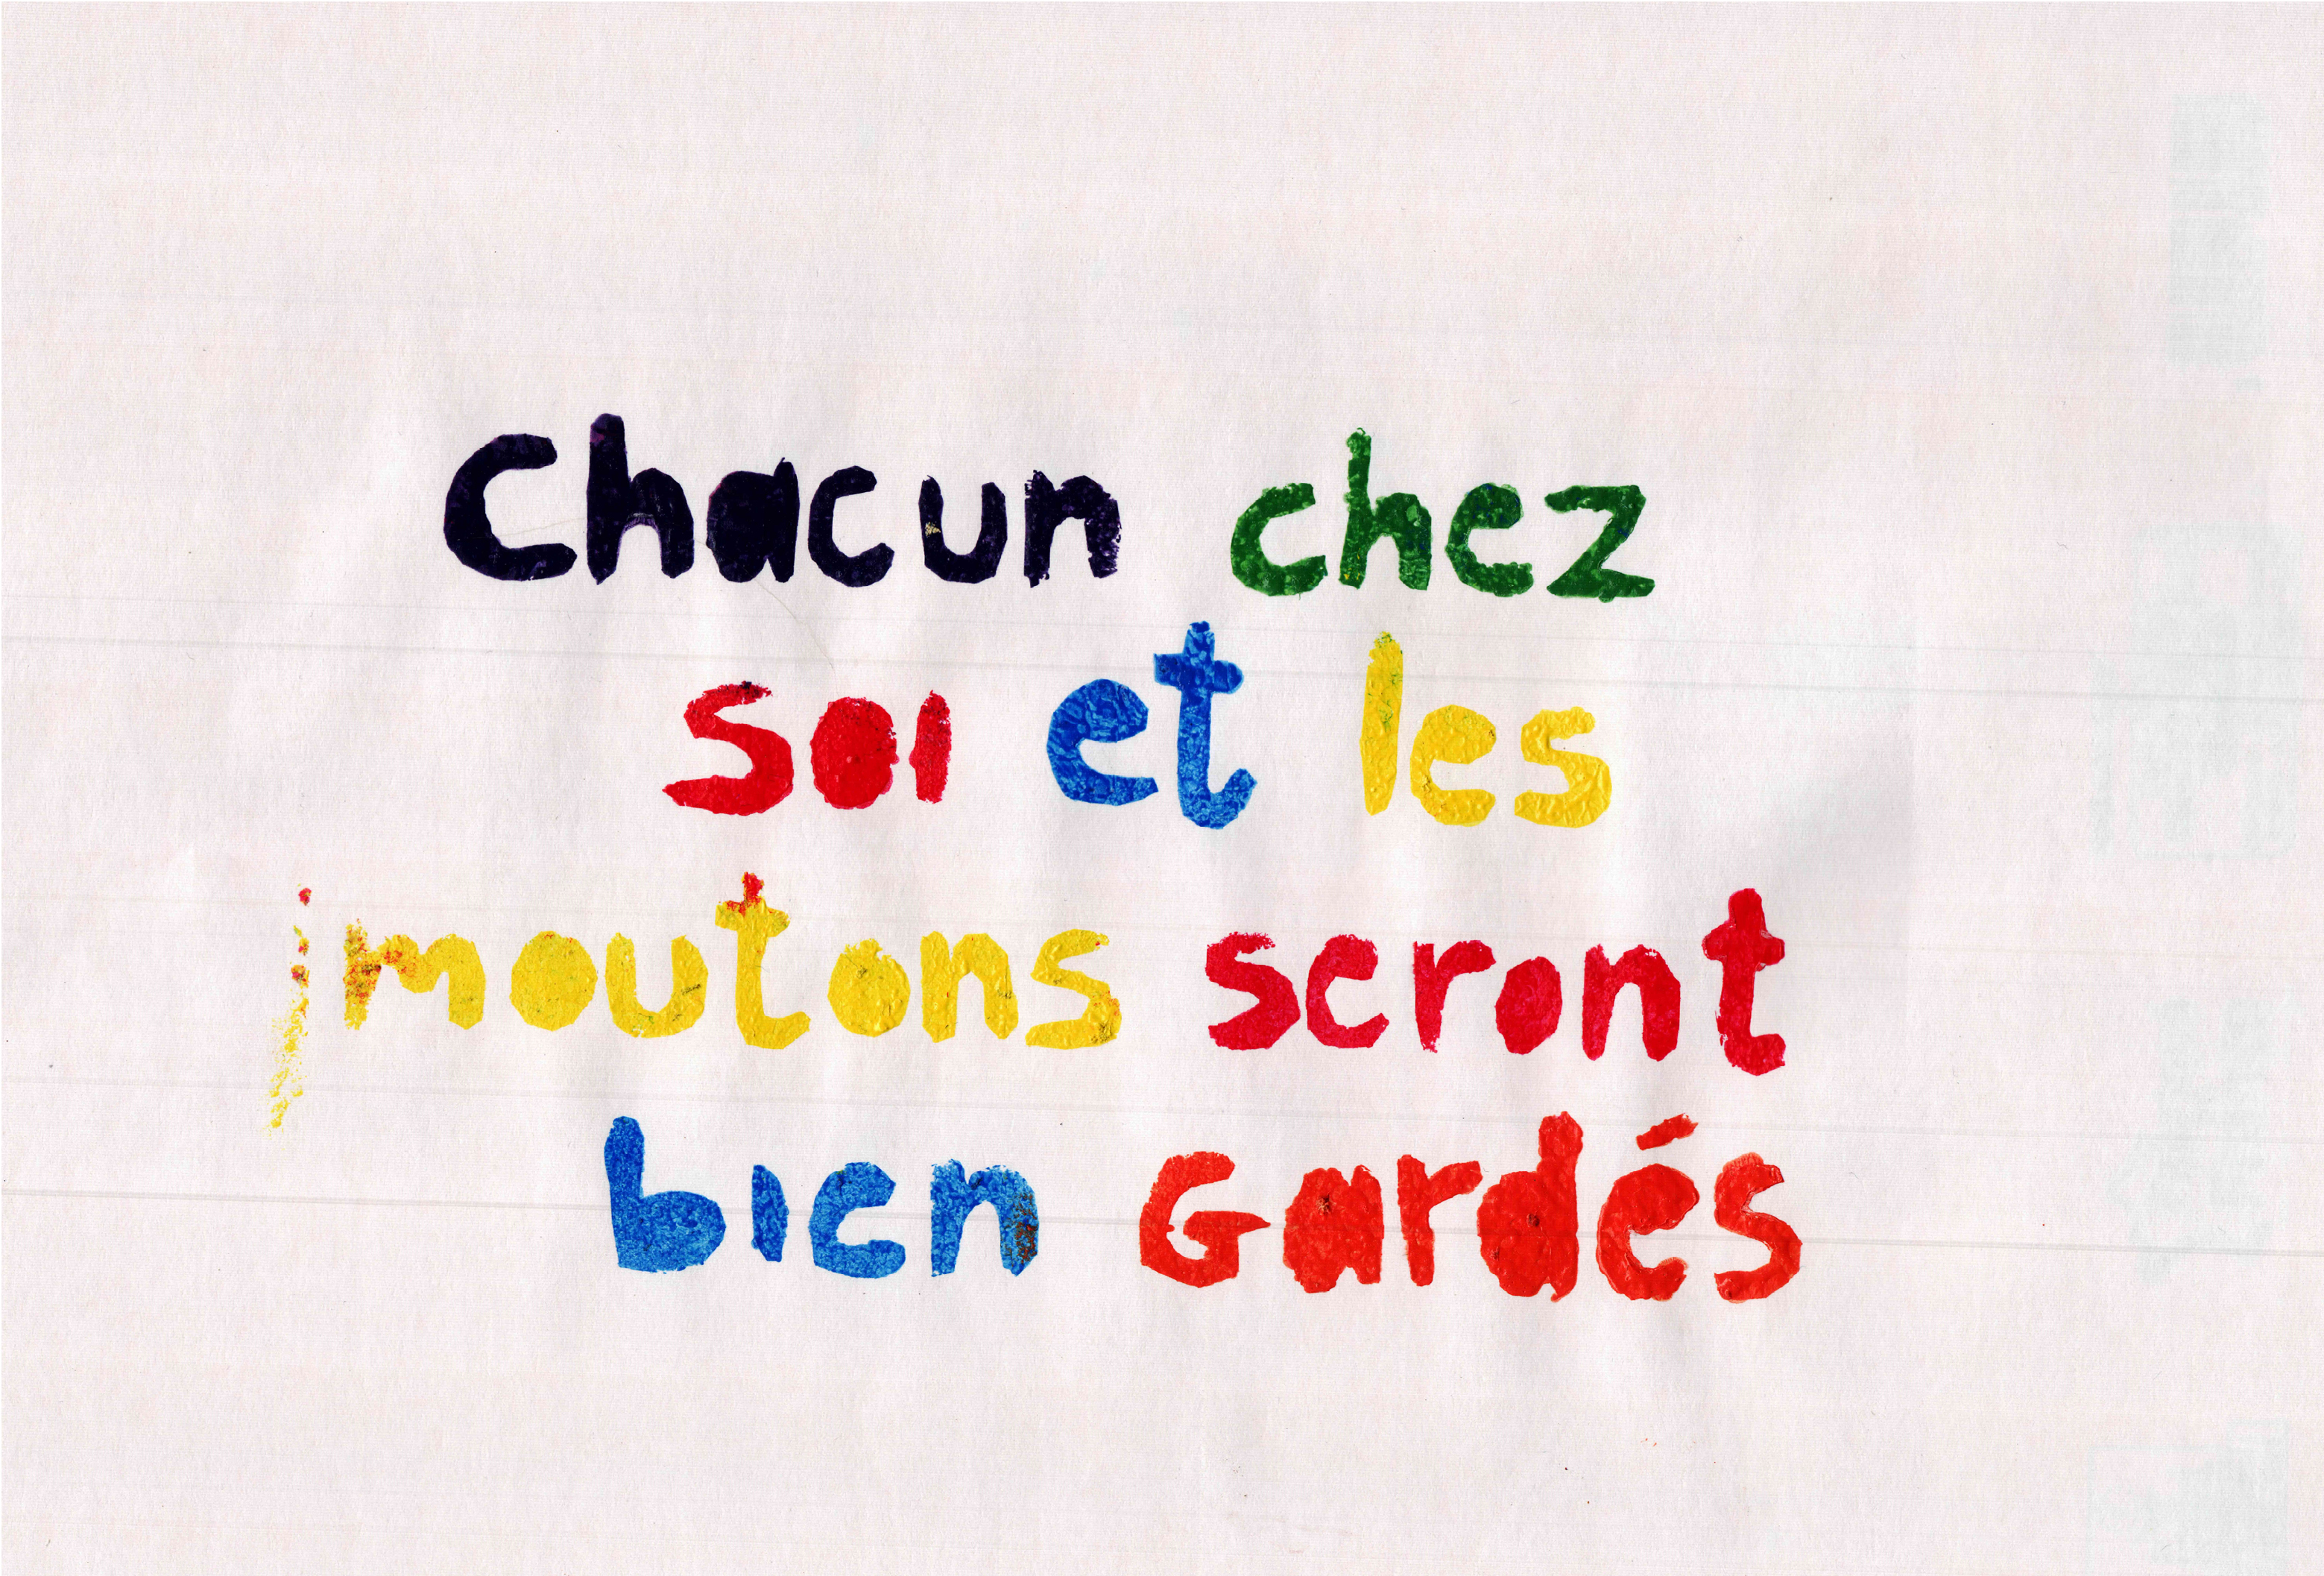 Chacun chez
soi et les
moutons seront
bien Gardés